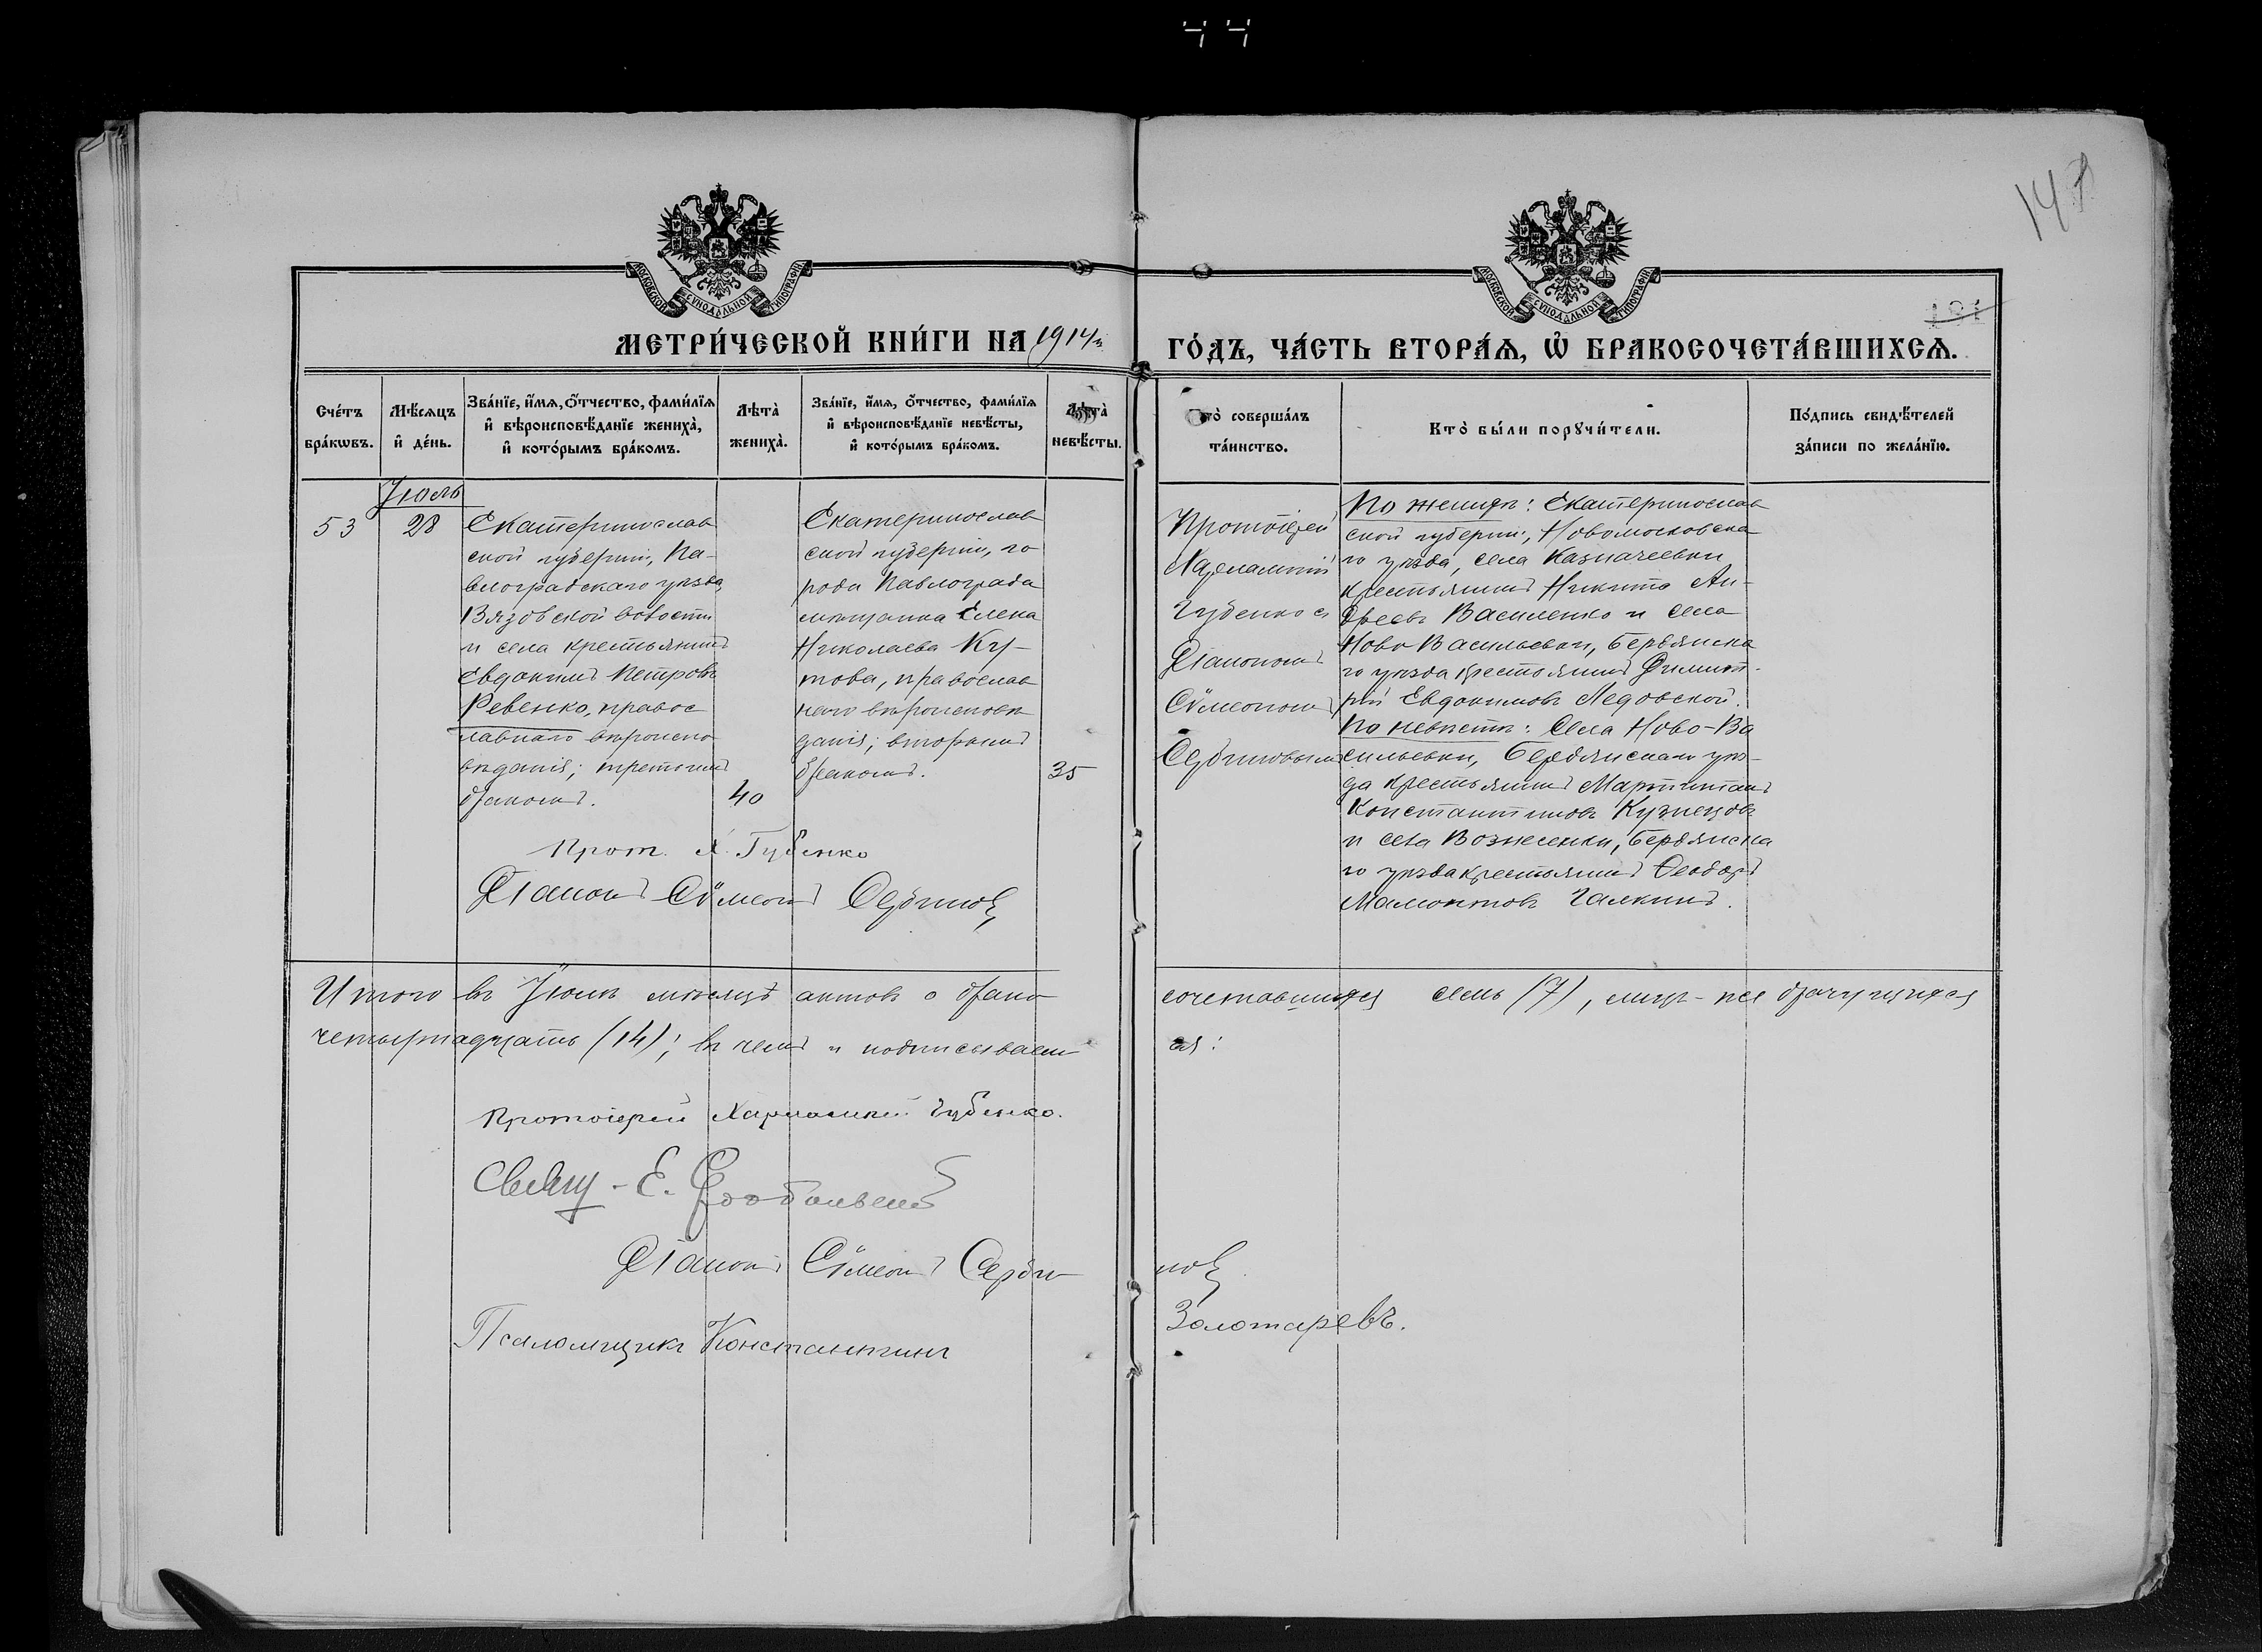 147
181
МОСКОВСКОЙ СѴНОДАЛЬНОЙ ТИПОГРАФІИ
МОСКОВСКОЙ СѴНОДАЛЬНОЙ ТИПОГРАФІИ
МЕТРИ́ЧЕСКОЙ КНИ́ГИ НА 1914 г. ГО́ДЪ, ЧА́СТЬ ВТОРА́Ѧ, Ѡ҆ БРАКОСОЧЕТА́ВШИХСѦ.
Сче́тъ
бра́кѡвъ.
Мѣ́сѧцъ
и҆ де́нь.
Зва́нїе, и҆́мѧ, ѻ҆́тчество, фами́лїѧ
и҆ вѣроисповѣ́данїе жениха̀,
и҆ кото́рымъ бра́комъ.
Лѣта̀
жениха̀.
Зва́нїе, и҆́мѧ, ѻ҆́тчество, фами́лїѧ
и҆ вѣроисповѣ́данїе невѣ́сты,
и҆ кото́рымъ бра́комъ.
Лѣта̀
невѣ́сты.
Кто̀ соверша́лъ
та́инство.
Кто̀ бы́ли порꙋчи́тели.
По́дпись свидѣ́телей
за́писи по жела́нїю.
Іюль
53
28
Екатеринослав
ской губерніи, Па-
влоградскаго уѣзда,
Вязовской волости
и села крестьянинъ
Евдокимъ Петровъ
Ревенко, правос
лавнаго вѣроиспо
вѣданія; третьимъ
бракомъ.
40
Екатеринослав
ской губерніи, го
рода Павлограда
мѣщанка Елена
Николаева Ку-
това, православ
наго вѣроисповѣ
данія; вторымъ
бракомъ.
35
Протоіерей
Харлампій
Губенко съ
Діакономъ
Сѵмеономъ
Сербиновымъ
По женихѣ: Екатеринослав
ской губерніи, Новомосковска
го уѣзда, села Казначеевки
крестьянинъ Никита Ан-
дреевъ Василенко и села
Ново Васильевки, Бердянска
го уѣзда крестьянинъ Димит-
рій Евдокимовъ Ледовской.
По невѣстѣ: Села Ново-Ва
сильевки, Бердянскаго уѣз-
да крестьянинъ
Константиновъ Кузнецовъ
и села Вознесенки, Бердянска
го уѣзда крестьянинъ Ѳеодоръ
Мамонтовъ Галкинъ.
Прот. Х. Губенко
Діаконъ Сѵмеонъ Сербиновъ
Итого въ Іюлѣ мѣсяцѣ актовъ о брако сочетавшихся семь (7), лицъ-же брачущихся
четырнадцать (14); въ чемъ и подписываем ся:
Протоіерей Харлампій Губенко.
Свящ - Е.
Діаконъ Сѵмеонъ Серби новъ
Псаломщикъ Константинъ Золотаревъ.